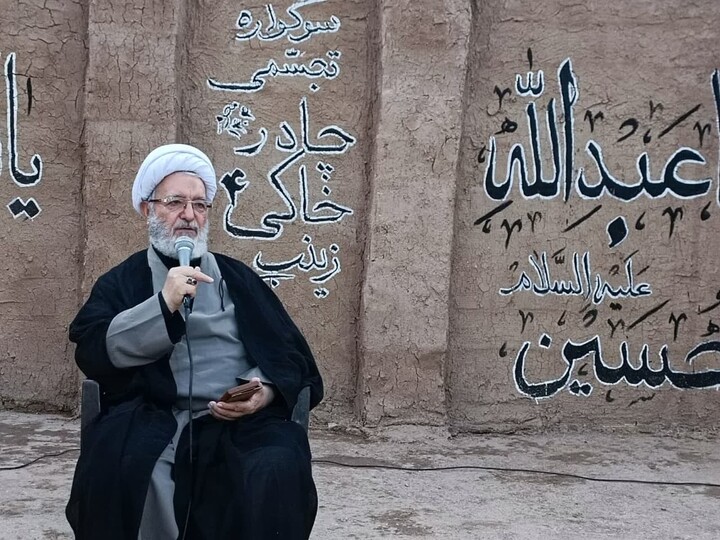 ا عبدالله
علیه السلام
حسین
سوگواره
تجسّمی
چادر
خاکی
زینب
یا